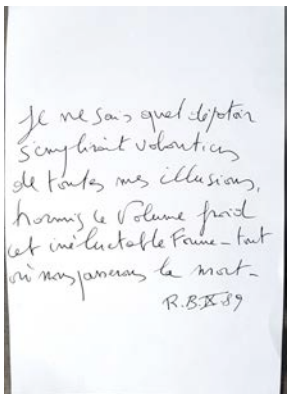 Je ne sais quel dépotoir
s'emplirait volontiers
de toutes mes illusions,
hormis ce Volume froid
cet inéluctable Fourre-tout
où nous passerons la mort-
R.B. IX 89